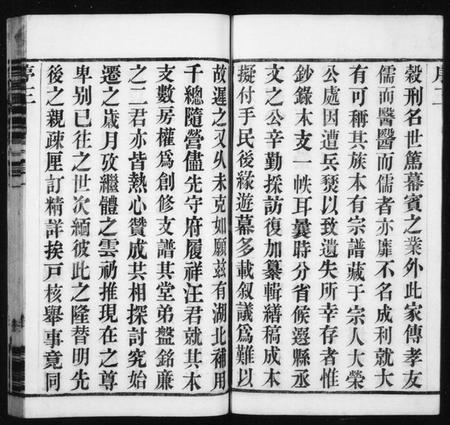 序二
穀刑名世篤幕賓之業外此家傳孝友
儒而醫醫而儒者亦靡不名成利就大
有可稱其族本有宗譜藏于宗人大榮
公處因遭兵燹以致遺失所幸存者惟
鈔錄本支一帙耳曩時分省候選縣丞
文之公辛勤採訪復加纂輯繕稿成本
擬付手民後緣遊幕多載叙議爲難以
故遲之又久未克如願兹有湖北補用
千總隨營儘先守府履祥汪君就其本
支數房權爲創修支譜其堂弟盤銘廉
之二君亦皆熱心贊成共相探討究始
遷之歲月攷繼體之雲礽推現在之尊
卑别已往之世次緬彼此之隆替明先
後之親疎厘訂精詳挨戸核舉事竟同
序三